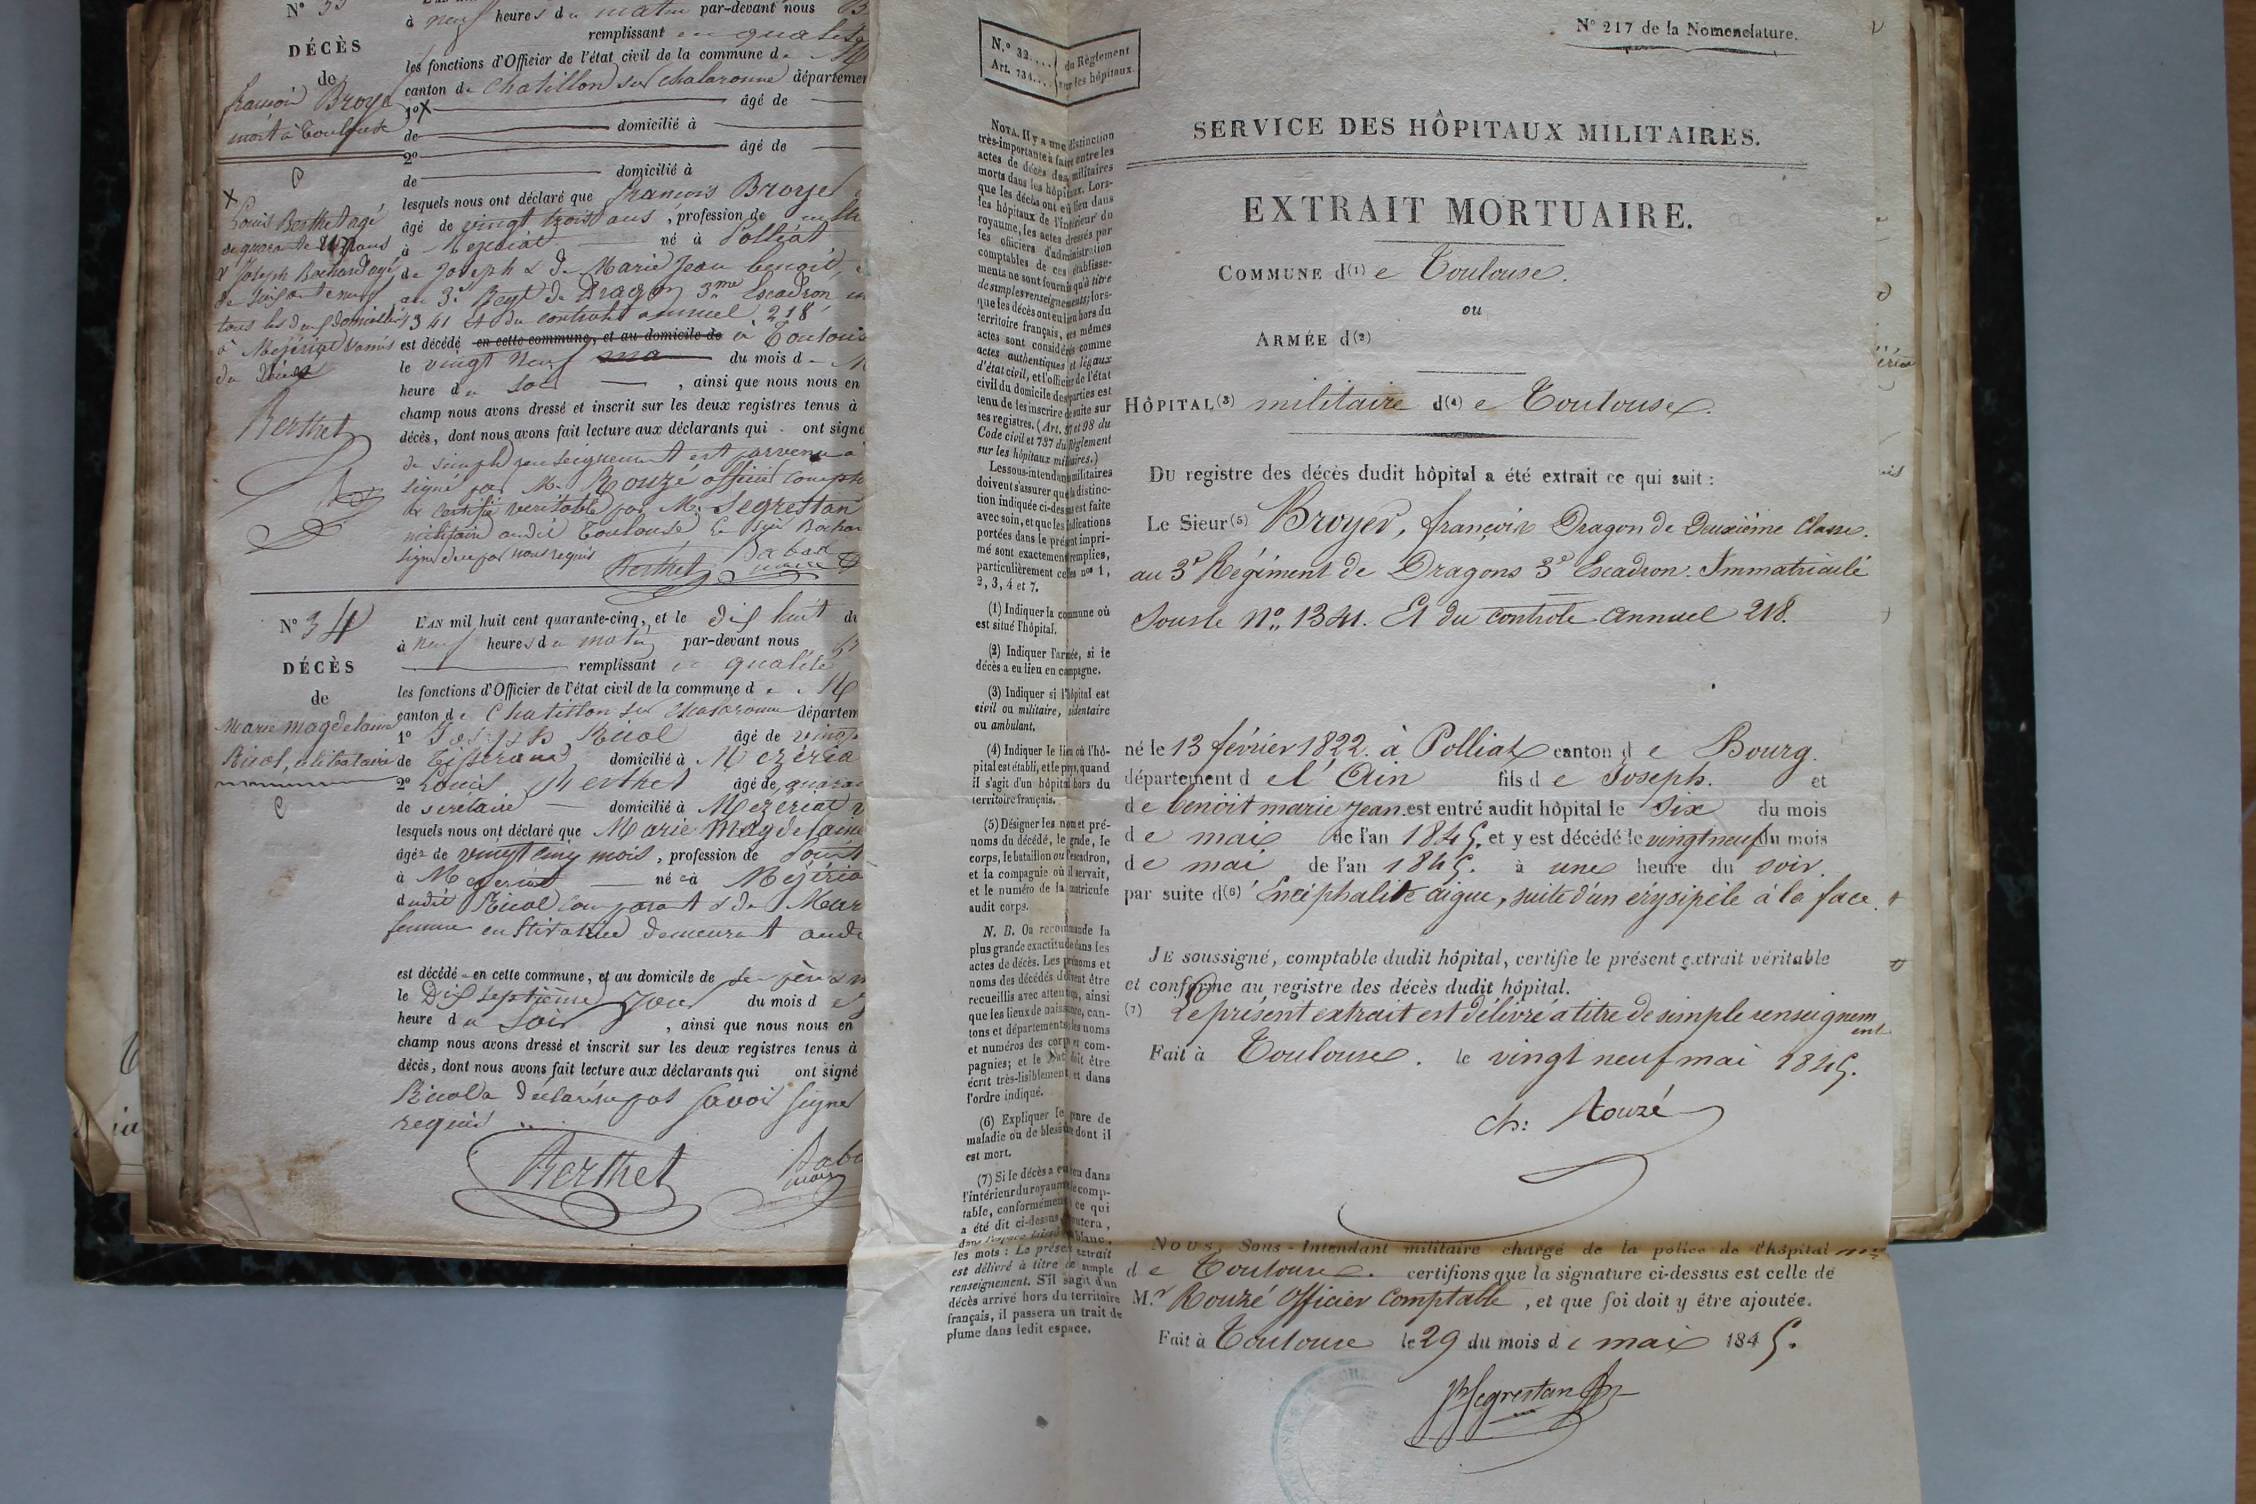 N° 33
DÉCÈS
de
françois Broyer
mort à Toulouse
à neuf heures du matin par-devant nous
remplissant en qualité
les fonctions d'Officier de l'état civil de la commune de
canton de Chatillon sur Chalaronne département
1° âgé de
de domicilié à
2° âgé de
de domicilié à
lesquels nous ont déclaré que françois Broyer
âgé de vingt trois ans, profession de
à Mezériat né à Polliat
de Joseph & de Marie Jean benoit,
au 3e Regt de Dragon 3me Escadron
1341 et du controle annuel 218
est décédé en cette commune, et au domicile de à Toulouse
le vingt neuf du mois de
heure du soir, ainsi que nous nous en
champ nous avons dressé et inscrit sur les deux registres tenus à
décès, dont nous avons fait lecture aux déclarants qui ont signé
de simple renseignement est parvenu à
signé par M. Rouzé officier compt
& certifié veritable par M. Segrestan
militaire audit Toulouse Le
signé de ce par nous requis
Berthet
X
Louis Berthet agé
de quarante ans
& Joseph Bochard agé
de soixante neuf
tous les deux domiciliés
à Mezériat
Berthet
N° 34
DÉCÈS
de
Marie magdelaine
Ricol, célibataire
L'AN mil huit cent quarante-cinq, et le dix huit du
à neuf heures du matin par-devant nous
remplissant en qualité
les fonctions d'Officier de l'état civil de la commune de
canton de Chatillon sur Chalaronne départem
1° Joseph Ricol âgé de vingt
de Tisserand domicilié à Mezéria
2° Louis Berthet âgé de quara
de secrétaire domicilié à Mezériat
lesquels nous ont déclaré que Marie Magdelaine
âgée de vingt cinq mois, profession de
à Mezeriat née à Mezéria
dudit Ricol comparant & de Mar
femme demeurant audi
est décédée en cette commune, et au domicile de ses père & m
le Dix septième jour du mois de
heure du soir, ainsi que nous nous en
champ nous avons dressé et inscrit sur les deux registres tenus à
décès, dont nous avons fait lecture aux déclarants qui ont signé
Ricol a déclaré ne pas savoir signer
requis
Berthet
N.° 32.... Art. 734.... du Règlement sur les hôpitaux.
N° 217 de la Nomenclature.
SERVICE DES HÔPITAUX MILITAIRES.
EXTRAIT MORTUAIRE.
COMMUNE d(1) e Toulouse.
ou
ARMÉE d(2)
HÔPITAL(3) militaire d(4) e Toulouse.
DU registre des décès dudit hôpital a été extrait ce qui suit :
Le Sieur(5) Broyer, françois Dragon de Deuxième Classe.
au 3e Régiment de Dragons 3e Escadron. Immatriculé
Sous le No. 1341. Et du controle annuel 218.
né le 13 février 1822. à Polliat canton de Bourg.
département de l'Ain fils de Joseph. et
de benoit marie jean. est entré audit hôpital le Six du mois
de mai de l'an 1845. et y est décédé le vingt neuf du mois
de mai de l'an 1845. à une heure du soir.
par suite d(6) Encéphalite aigue, suite d'un érysipèle à la face.
JE soussigné, comptable dudit hôpital, certifie le présent extrait véritable
et conforme au registre des décès dudit hôpital.
(7) Le présent extrait est délivré à titre de simple renseignem
ent
Fait à Toulouse. le vingt neuf mai 1845.
Ch: Rouzé
NOUS, Sous-Intendant militaire chargé de la police de l'hôpital mre
de Toulouse. certifions que la signature ci-dessus est celle de
M.r Rouzé Officier Comptable, et que foi doit y être ajoutée.
Fait à Toulouse le 29 du mois de mai 1845.
Segrestan
NOTA. Il y a une distinction
très-importante à faire entre les
actes de décès des militaires
morts dans les hôpitaux. Lors-
que les décès ont eu lieu dans
les hôpitaux de l'intérieur du
royaume, les actes dressés par
les officiers d'administration
comptables de ces établisse-
ments ne sont fournis qu'à titre
de simples renseignements; lors-
que les décès ont eu lieu hors du
territoire français, ces mêmes
actes sont considérés comme
actes authentiques et légaux
d'état civil, et l'officier de l'état
civil du domicile des parties est
tenu de les inscrire de suite sur
ses registres. (Art. 97 et 98 du
Code civil et 737 du Règlement
sur les hôpitaux militaires.)
Les sous-intendants militaires
doivent s'assurer que la distinc-
tion indiquée ci-dessus est faite
avec soin, et que les indications
portées dans le présent impri-
mé sont exactement remplies,
particulièrement celles nos 1,
2, 3, 4 et 7.
(1) Indiquer la commune où
est situé l'hôpital.
(2) Indiquer l'armée, si le
décès a eu lieu en campagne.
(3) Indiquer si l'hôpital est
civil ou militaire, sédentaire
ou ambulant.
(4) Indiquer le lieu où l'hô-
pital est établi, et le pays, quand
il s'agit d'un hôpital hors du
territoire français.
(5) Désigner les nom et pré-
noms du décédé, le grade, le
corps, le bataillon ou l'escadron,
et la compagnie où il servait,
et le numéro de la matricule
audit corps.
N. B. On recommande la
plus grande exactitude dans les
actes de décès. Les prénoms et
noms des décédés doivent être
recueillis avec attention, ainsi
que les lieux de naissance, can-
tons et départements, les noms
et numéros des corps et com-
pagnies; et le tout doit être
écrit très-lisiblement et dans
l'ordre indiqué.
(6) Expliquer le genre de
maladie ou de blessure dont il
est mort.
(7) Si le décès a eu lieu dans
l'intérieur du royaume, le comp-
table, conformément à ce qui
a été dit ci-dessus, ajoutera,
dans l'espace laissé en blanc,
les mots : Le présent extrait
est délivré à titre de simple
renseignement. S'il s'agit d'un
décès arrivé hors du territoire
français, il passera un trait de
plume dans ledit espace.